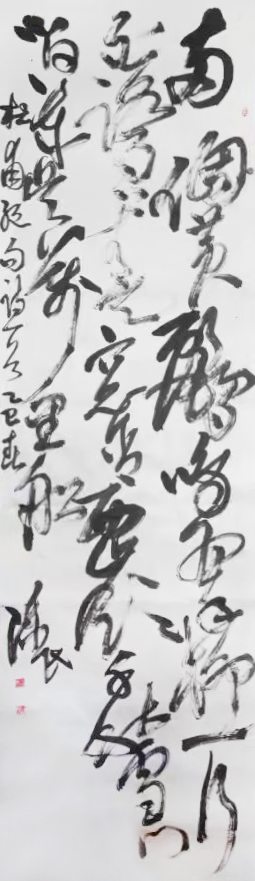 兩個黄鸝鳴翠柳一行
白鷺上青天窗含西嶺千秋雪門
泊東吴萬里船
杜甫絶句詩一首乙巳春